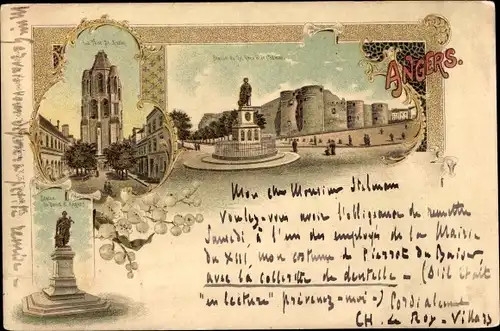 La Tour St. Aubin
Statue du Roi René et le Château
ANGERS.
Statue
de David d'Angers
Mon cher Monsieur Stelmans
Voulez-vous avoir l'obligeance de remettre
Samedi à l'un des employés de la Mairie
du XIII, mon costume de Pierrot du Baiser,
avec la collerette de dentelle – (S'il était
"en lecture" prévenez-moi –) Cordialement
CH. de Roy-Villars